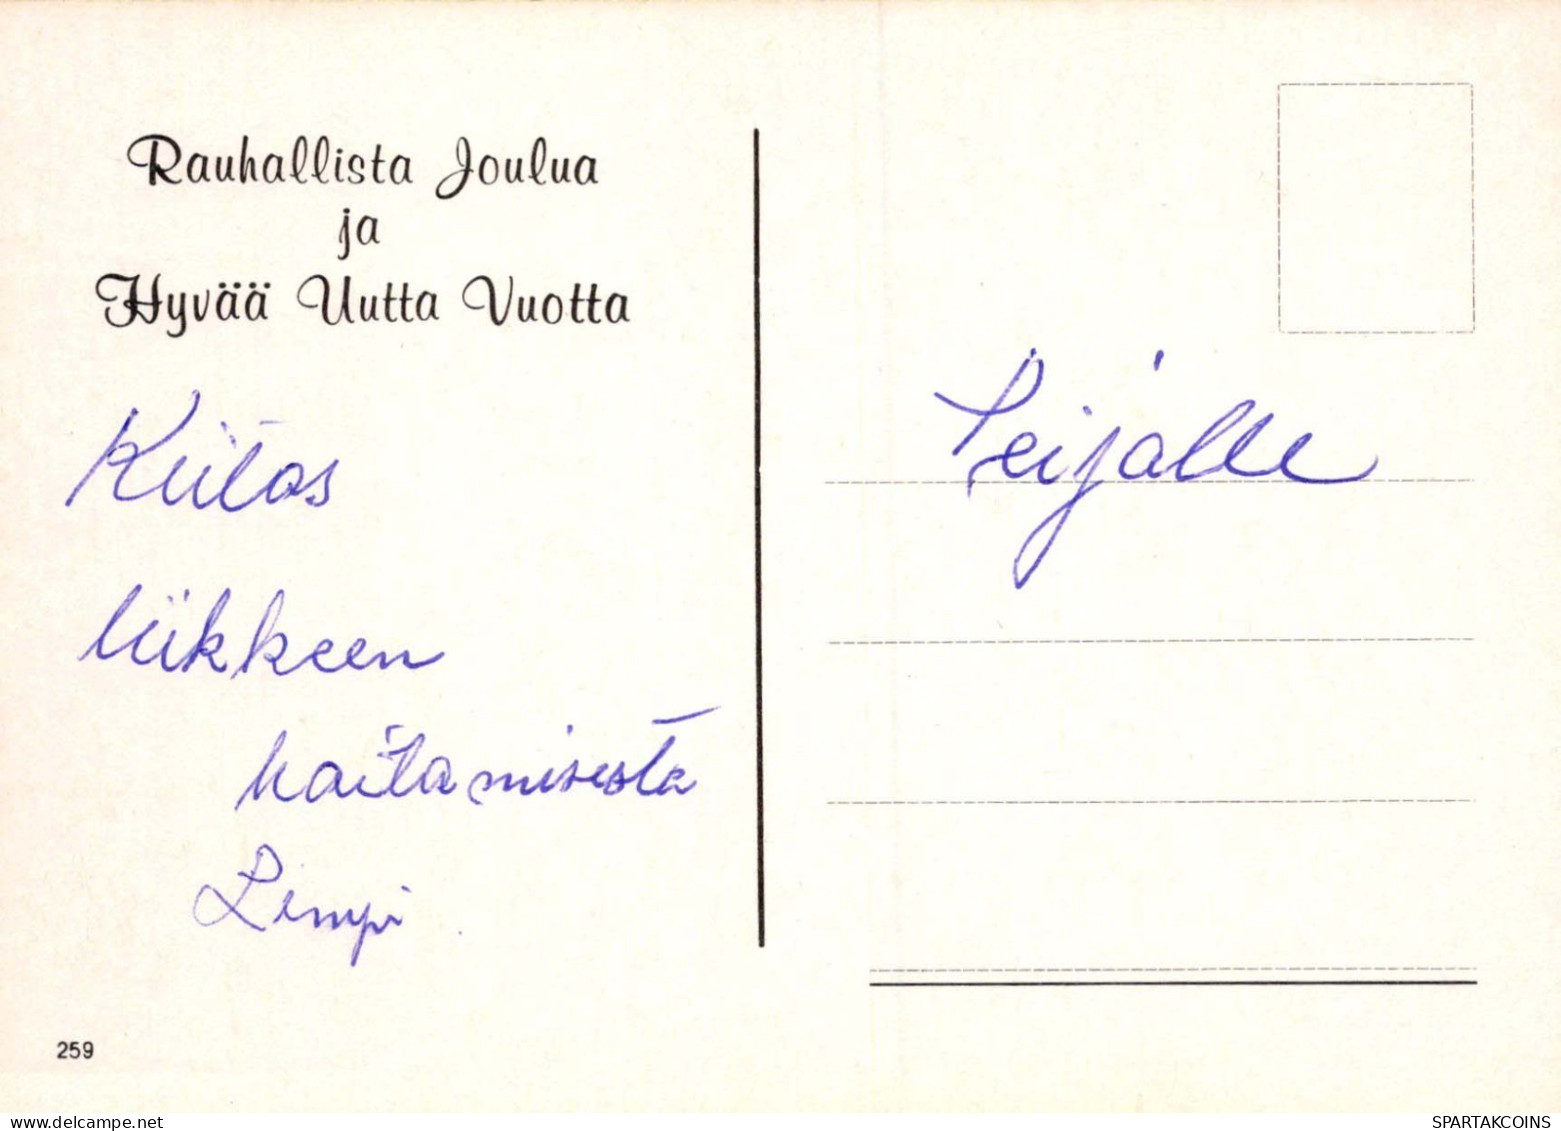 Rauhallista Joulua
ja
Hyvää Uutta Vuotta
Kiitos
liikkeen
hoitamisesta
Limpi
Leijalle
259
delcampe.net
SPARTAKCOINS